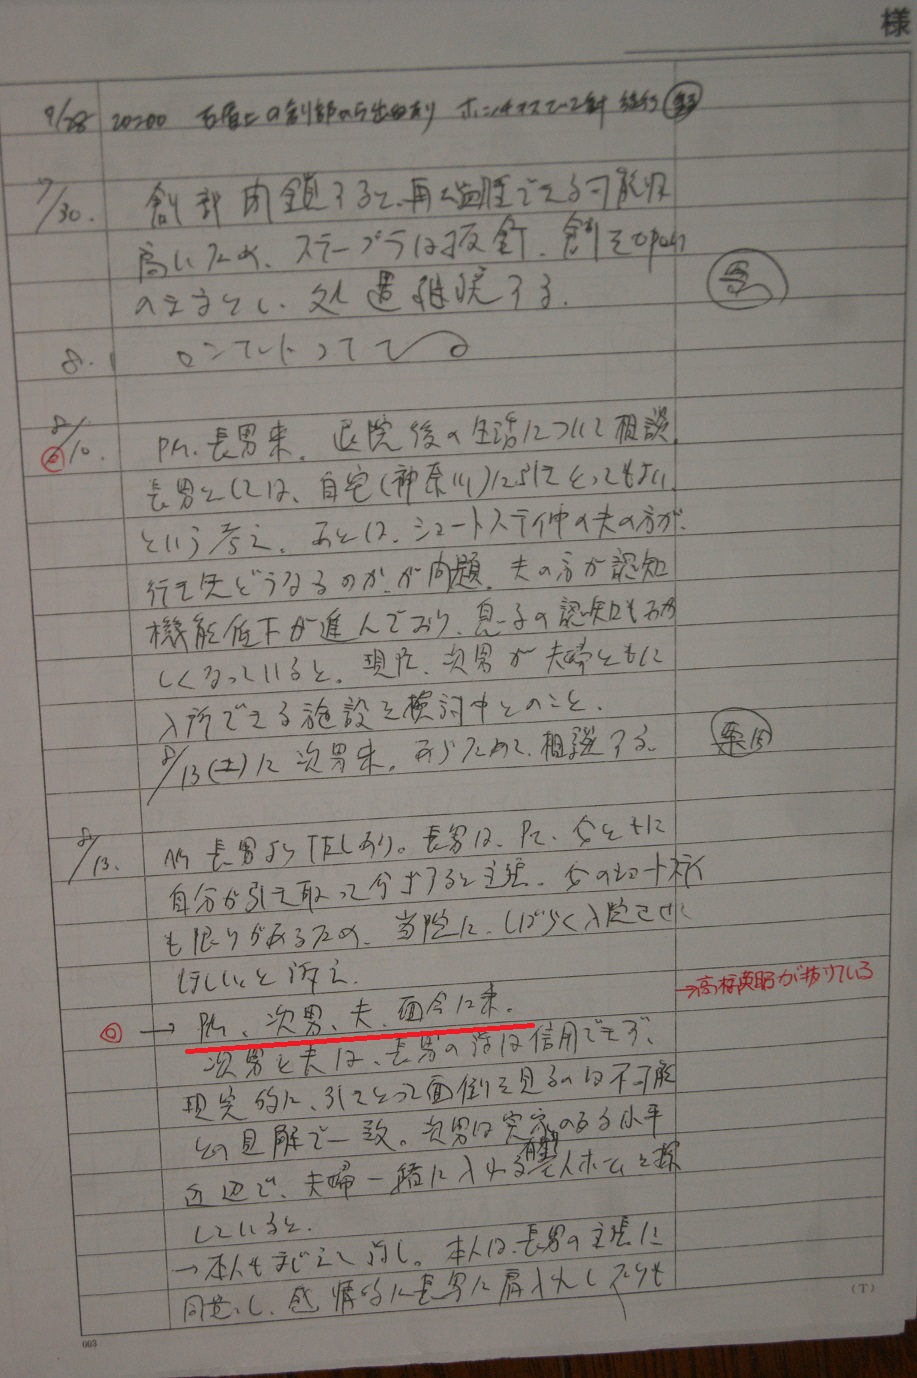 様
7/28 20:00 右肩上の創部から出血あり ホッチキスで2針 施行
7/30. 創部閉鎖すると、再も血腫できる可能性
高いため、ステープラは抜釘、創をopen
のままとし、処置継続する.
8. 1 ロンテントって
8/10. PM. 長男来. 退院後の生活について相談.
長男としては、自宅(神奈川)に引きとってもよい、
という考え. あとは、ショートステイ中の夫の方が、
行き先どうなるのか、が問題. 夫の方が認知
機能低下が進んでおり、息子の認知もあや
しくなっていると. 現在、次男が夫婦ともに
入所できる施設を検討中とのこと.
8/13(土)に次男来. あらためて、相談する.
8/13. AM 長男よりTELあり。長男は、Pt、父ともに
自分が引き取って介ゴすると主張. 父のショートステイ
も限りがあるため、当院に、しばらく入院させて
ほしいと訴え.
→ PM、次男、夫、面会に来.
→高 が 捗りている
次男と夫は、長男の話は信用できず、
現実的に、引きとって面倒を見るのは不可能
との見解で一致。次男は実家のある水平
近辺で、夫婦一緒に入れる有料老人ホームを探
していると.
→本人もまじえて話し。本人は、長男の主張に
同意し、感情的に長男に肩入れしており
(T)
003